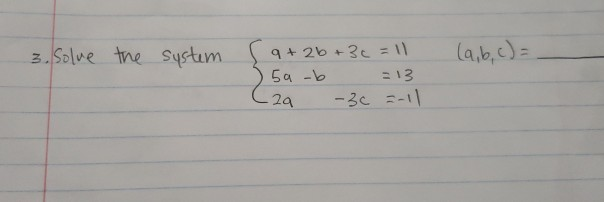 3. Solve the system { a + 2b + 3c = 11 (a,b,c) = ____
5a - b = 13
2a - 3c = -11